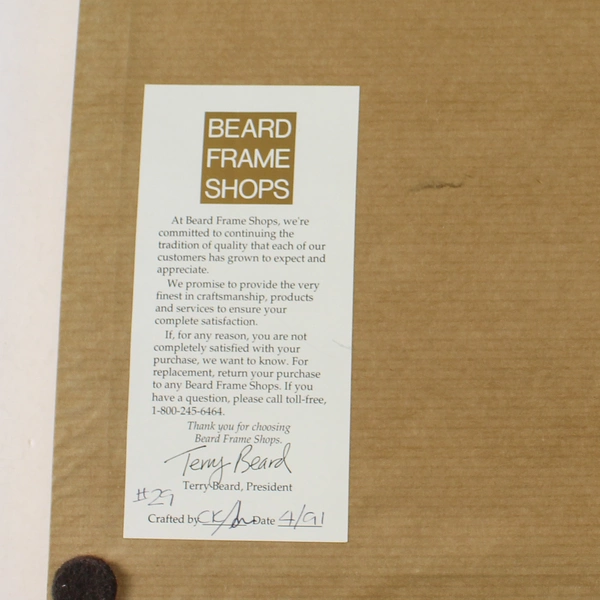 BEARD
FRAME
SHOPS
At Beard Frame Shops, we're
committed to continuing the
tradition of quality that each of our
customers has grown to expect and
appreciate.
We promise to provide the very
finest in craftsmanship, products
and services to ensure your
complete satisfaction.
If, for any reason, you are not
completely satisfied with your
purchase, we want to know. For
replacement, return your purchase
to any Beard Frame Shops. If you
have a question, please call toll-free,
1-800-245-6464.
Thank you for choosing
Beard Frame Shops.
Terry Beard
Terry Beard, President
#29
Crafted by CK/ Date 4/91